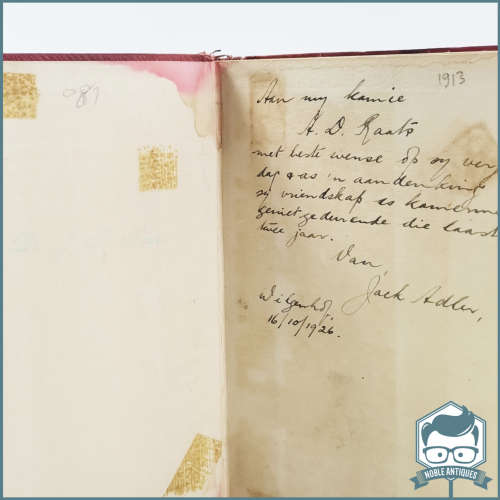 081
1913
Aan my kamie
A. D. Raats
met beste wense op sy ver
dag & as 'n aandenking
sy vriendskap as kamerm
geniet gedurende die laast
twee jaar.
Van
Jack Adler,
Wilgenhof,
16/10/1926.
NOBLE ANTIQUES